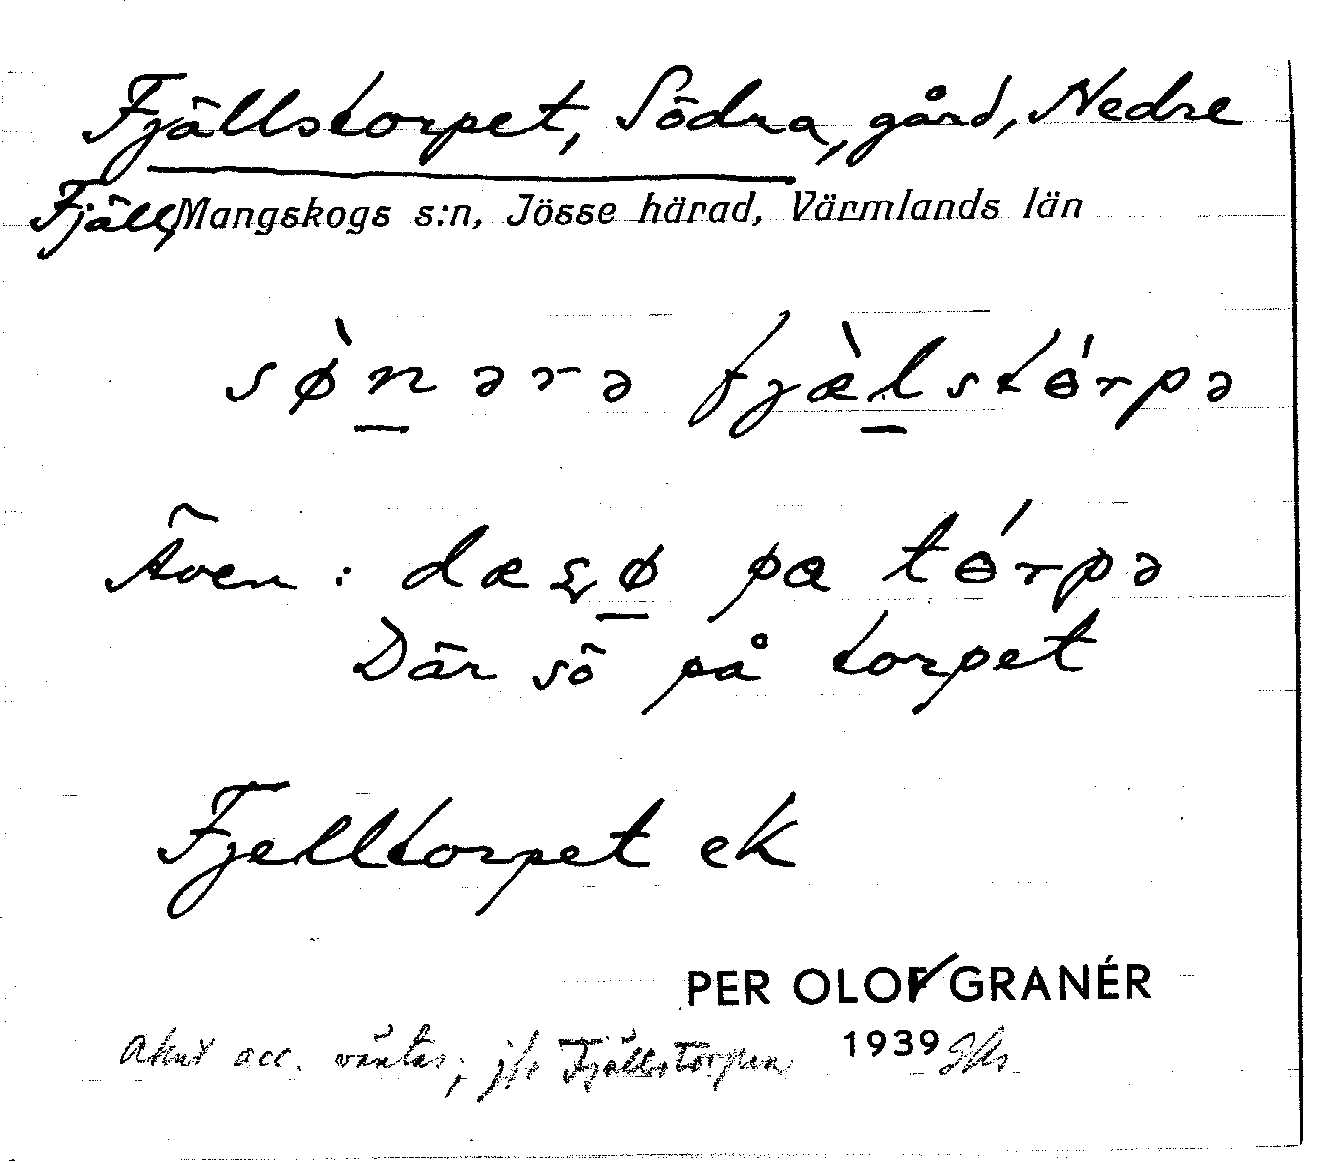 Fjällstorpet, Södra, gård, Nedre
Fjäll, Mangskogs s:n, Jösse härad, Värmlands län
sø̀n̲ərə fjæ̀l̲stɵ́rpə
Även: dæ sø̲ pa tɵ́rpə
Där sö på torpet
Fjelltorpet ek
PER OLOF GRANÉR
1939
Akut acc. väntas; jfr Fjällstorpen